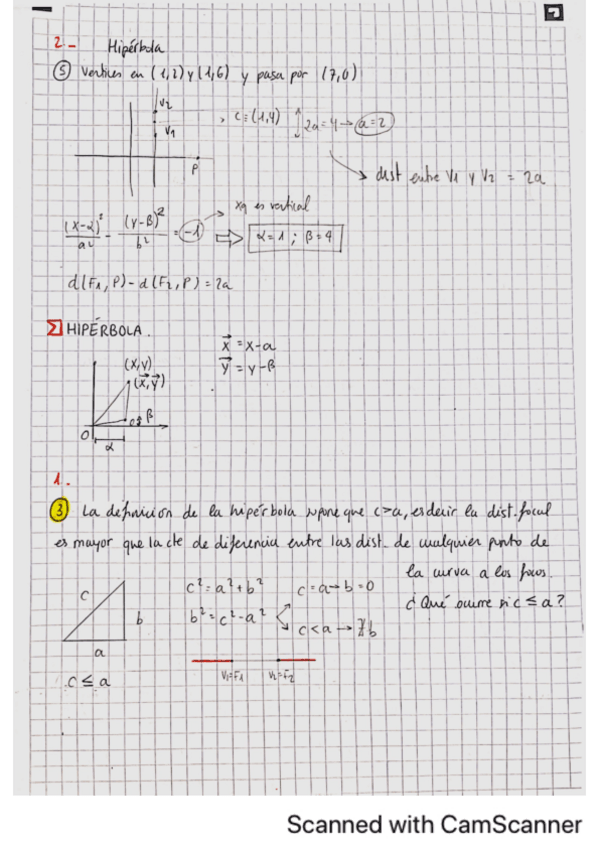 2.- Hipérbola
5 Vertices en (1,2) y (1,6) y pasa por (7,0)
V2
V1
P
C=(1,4) 2a=4→ a=2
dist entre V1 y V2 = 2a
(x-α)²/a² - (y-β)²/b² = -1 xq es vertical ⇒ α=1 ; β=4
d(F1,P)-d(F2,P)=2a
Σ HIPÉRBOLA.
x⃗ = x-a
y⃗ = y-β
(x,y)
(x⃗,y⃗)
β
O
α
1.
3 La definición de la hipérbola supone que c>a, es decir la dist. focal
es mayor que la cte de diferencia entre las dist. de cualquier punto de
la curva a los focos.
¿Qué ocurre si c≤a?
c
b
a
c ≤ a
c²=a²+b²
b²=c²-a²
c=a→b=0
c<a→∄b
V1=F1 V2=F2
Scanned with CamScanner